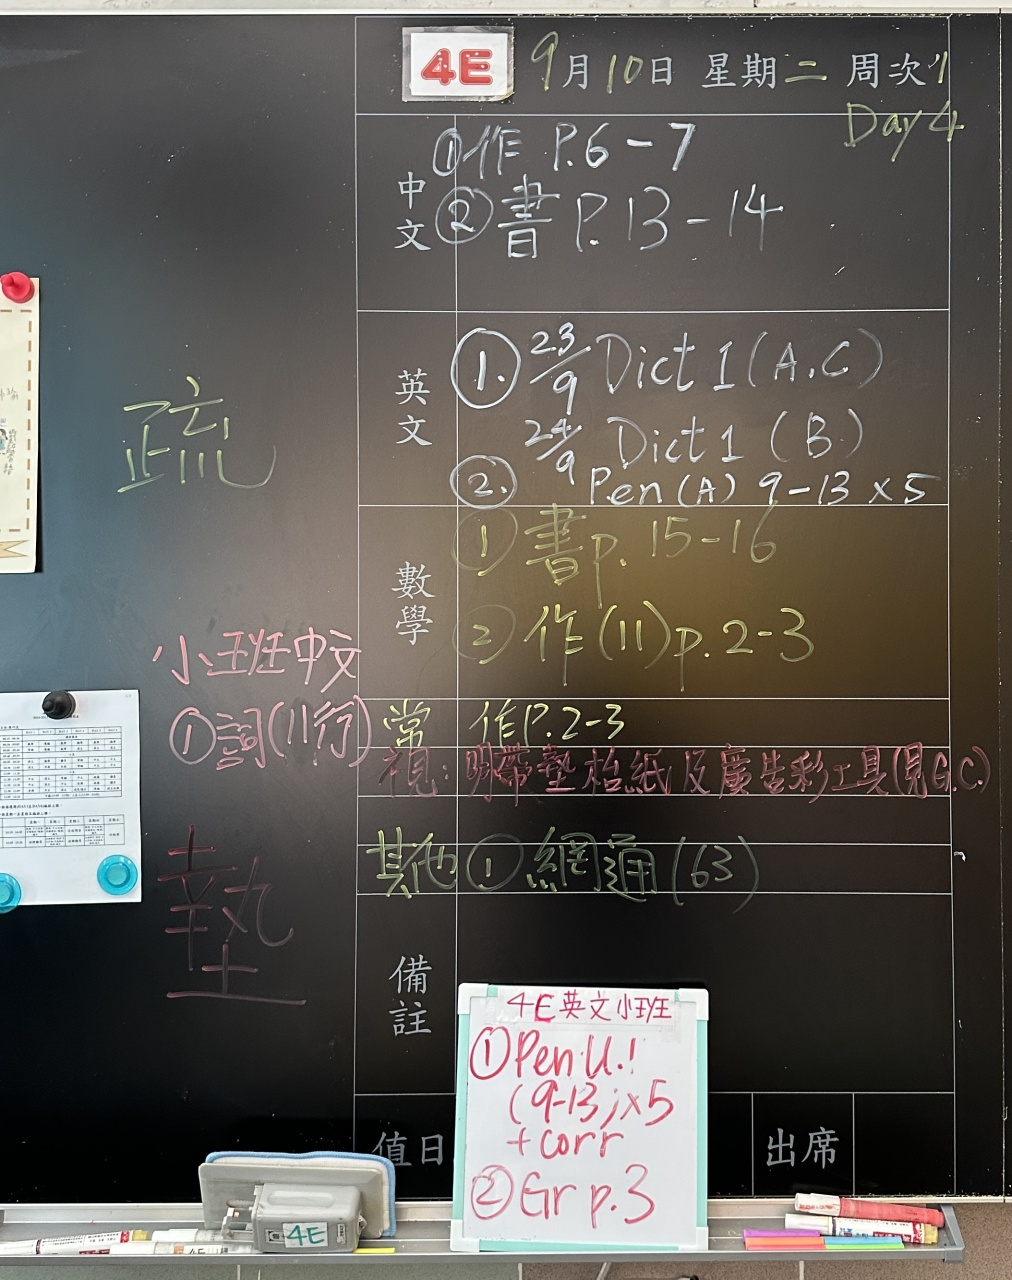 4E 9月10日 星期二 周次1
Day 4
中文
①作 P.6-7
②書 P.13-14
英文
①. 23/9 Dict 1 (A.C)
24/9 Dict 1 (B)
②. Pen (A) 9-13 x5
數學
① 書 p.15-16
② 作(11) p.2-3
常 作P.2-3
視：明帶墊枱紙及廣告彩工具(見G.C.)
其他 ① 網通(63)
備註
值日
出席
疏
小班中文
①詞(11行)
墊
4E英文小班
①Pen U.1
(9-13)x5
+corr
②Gr p.3
4E